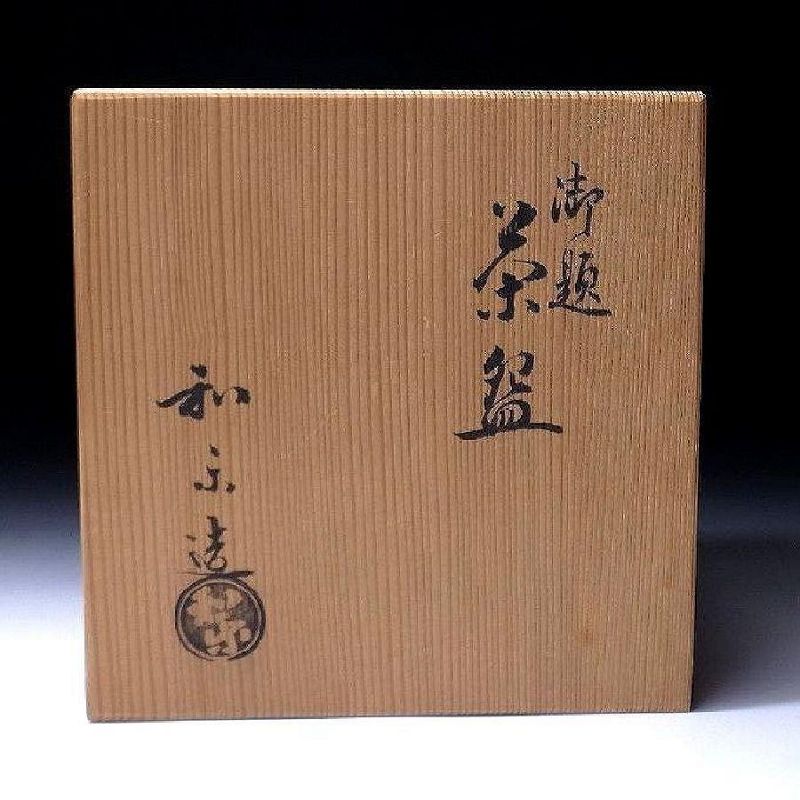 御題
茶盌
和宗造